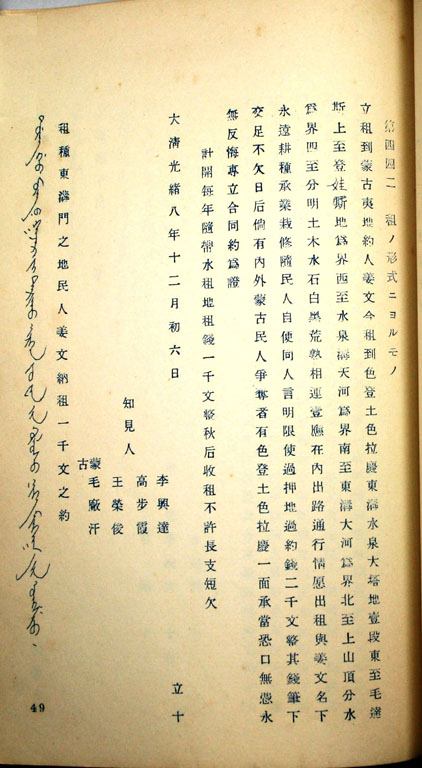 第四四二　租ノ形式ニヨルモノ
立租到蒙古夷地約人姜文今租到色登土色拉慶東濤水泉大塔地壹段東至毛達
斯上至登娃嘶地爲界西至水泉濤天河爲界南至東濤大河爲界北至上山頂分水
爲界四至分明土木水石白黑荒熟相連壹應在內出路通行情愿出租與姜文名下
永遠耕種承業栽修隨民人自使同人言明限使過押地過約錢二千文整其錢筆下
交足不欠日后倘有內外蒙古民人爭奪者有色登土色拉慶一面承當恐口無憑永
無反悔專立合同約爲證
計開每年隨帶水租地租錢一千文整秋后收租不許長支短欠
大淸光緖八年十二月初六日　立十
知見人
李興達
高步霞
王榮俊
蒙古毛廠汗
租種東濤門之地民人姜文納租一千文之約
49